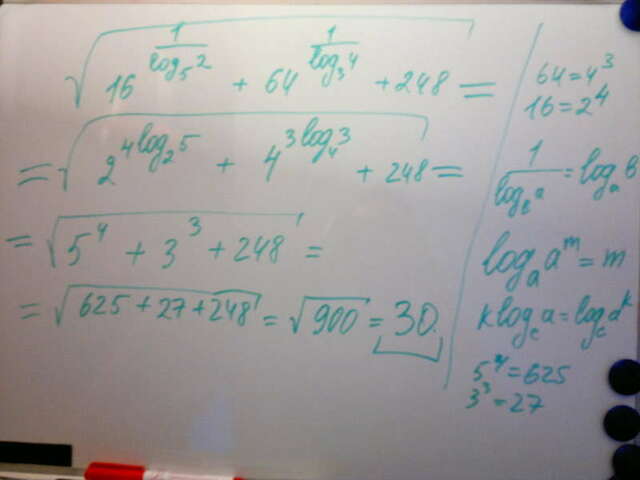 √(16^(1/log₅2) + 64^(1/log₃4) + 248) =
= √(2^(4log₂5) + 4^(3log₄3) + 248) =
= √(5⁴ + 3³ + 248) =
= √(625 + 27 + 248) = √900 = 30.
64 = 4³
16 = 2⁴
1/(log_b a) = log_a b
log_a a^m = m
k log_c a = log_c a^k
5⁴ = 625
3³ = 27